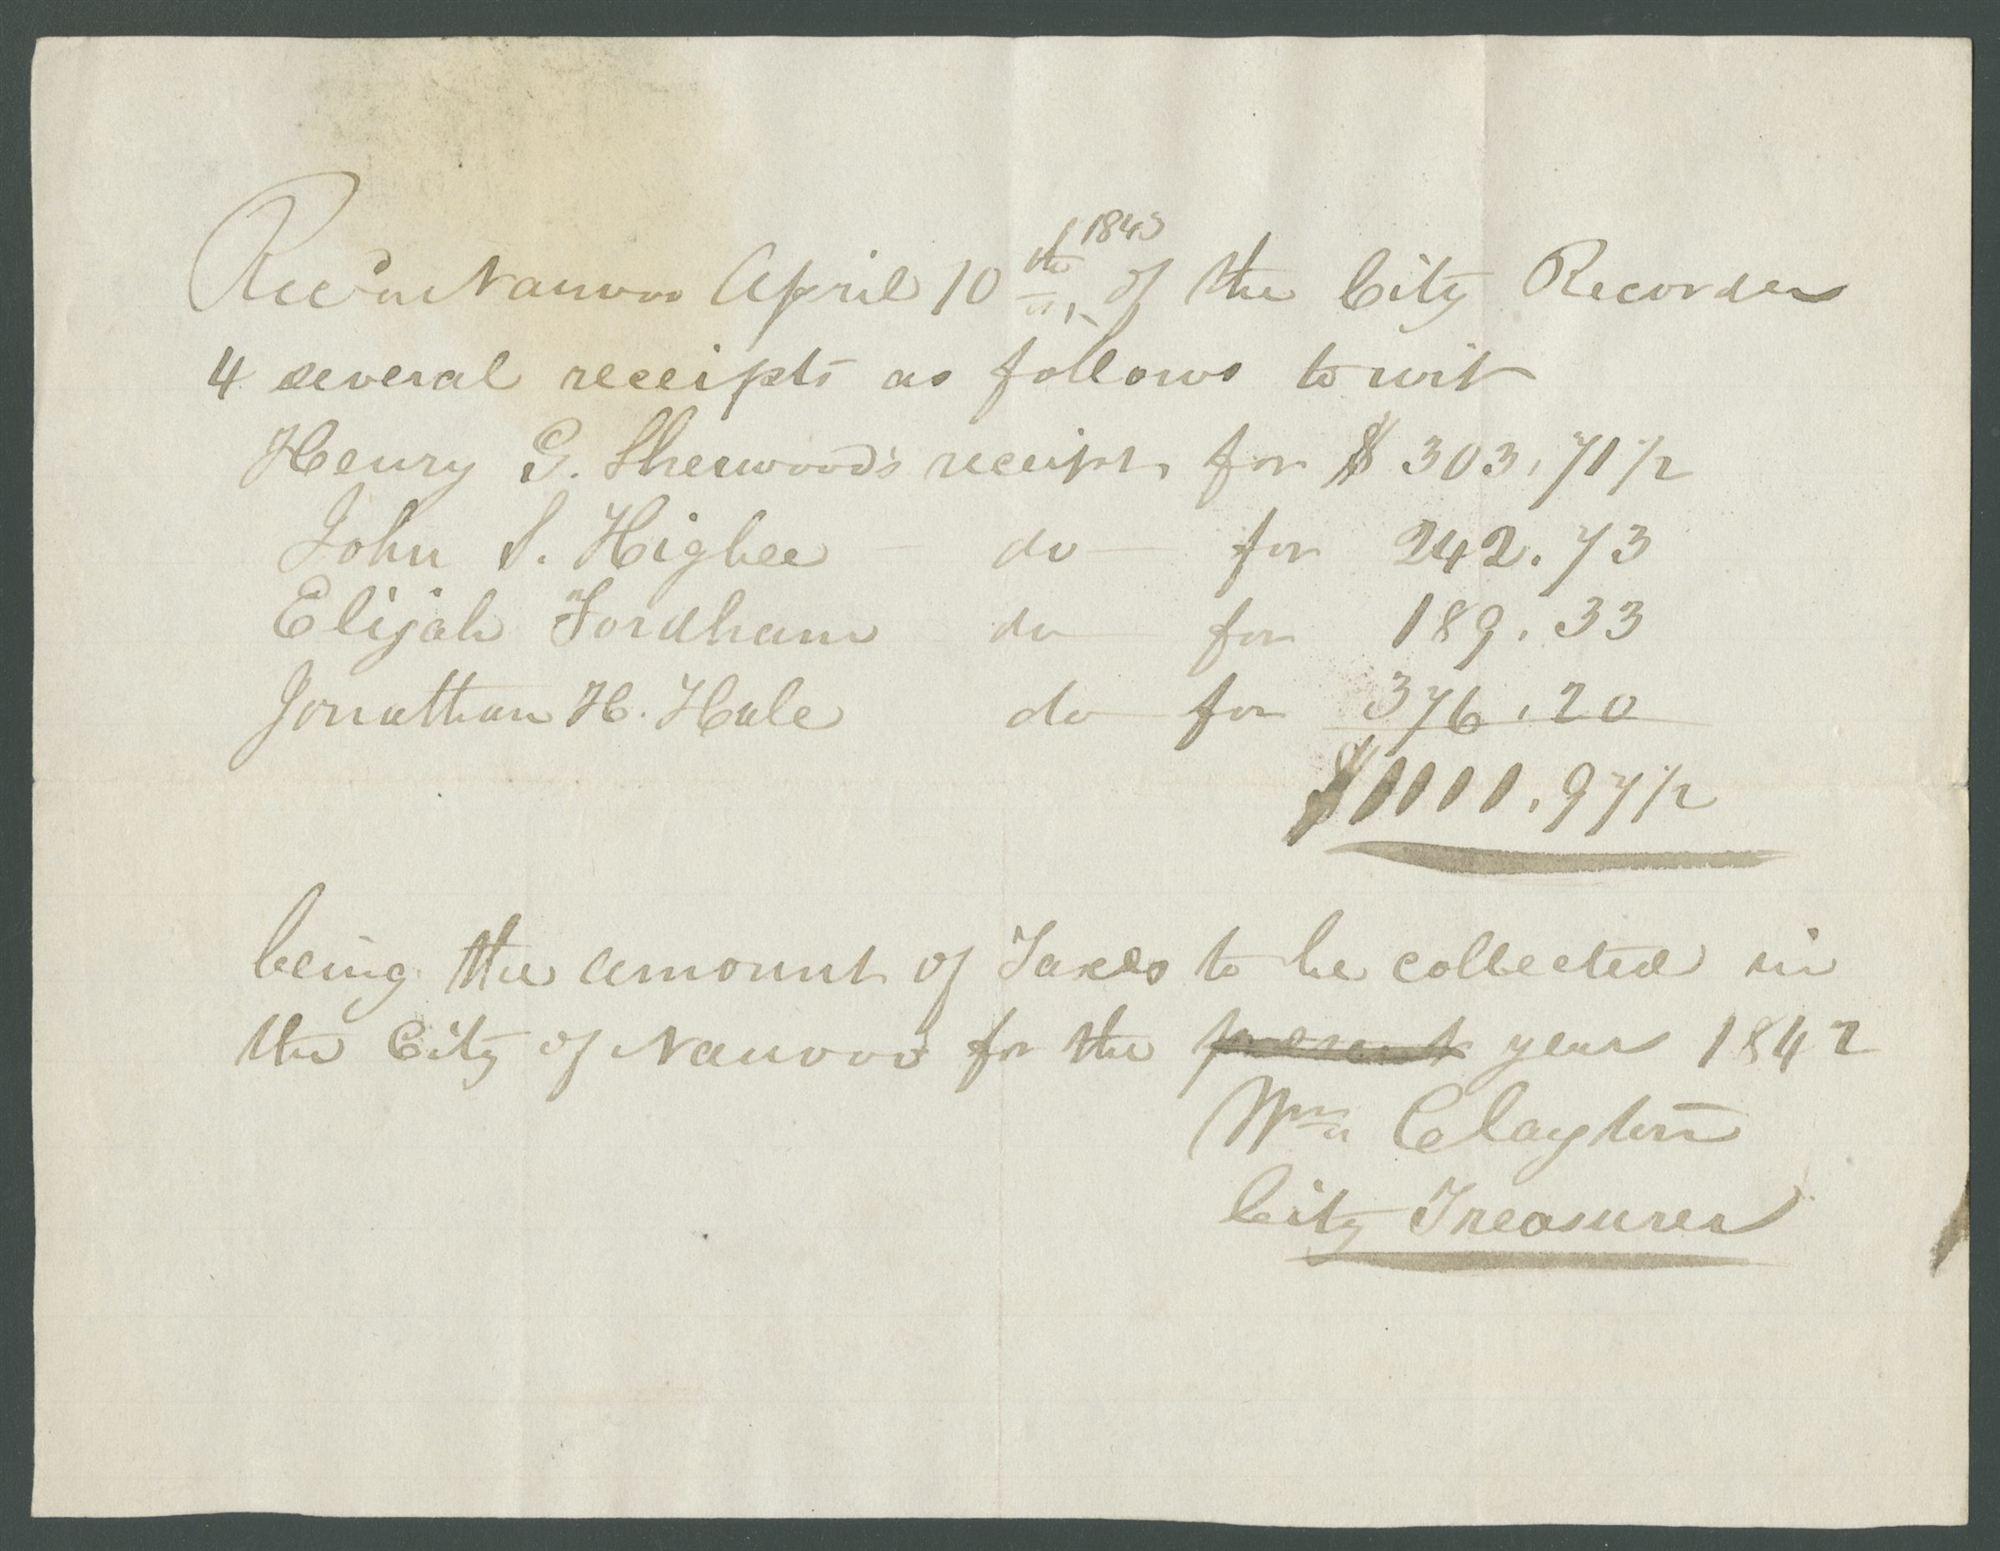 Recd. Nauvoo April 10th 1843 of the City Recorder
4 several receipts as follows to wit
Henry G. Sherwood's receipt for $303.71½
John S. Higbee — do — for 242.73
Elijah Fordham do — for 189.33
Jonathan H. Hale do — for 376.20
$1111.97½
being the amount of Taxes to be collected in
the City of Nauvoo for the present year 1842
Wm Clayton
City Treasurer